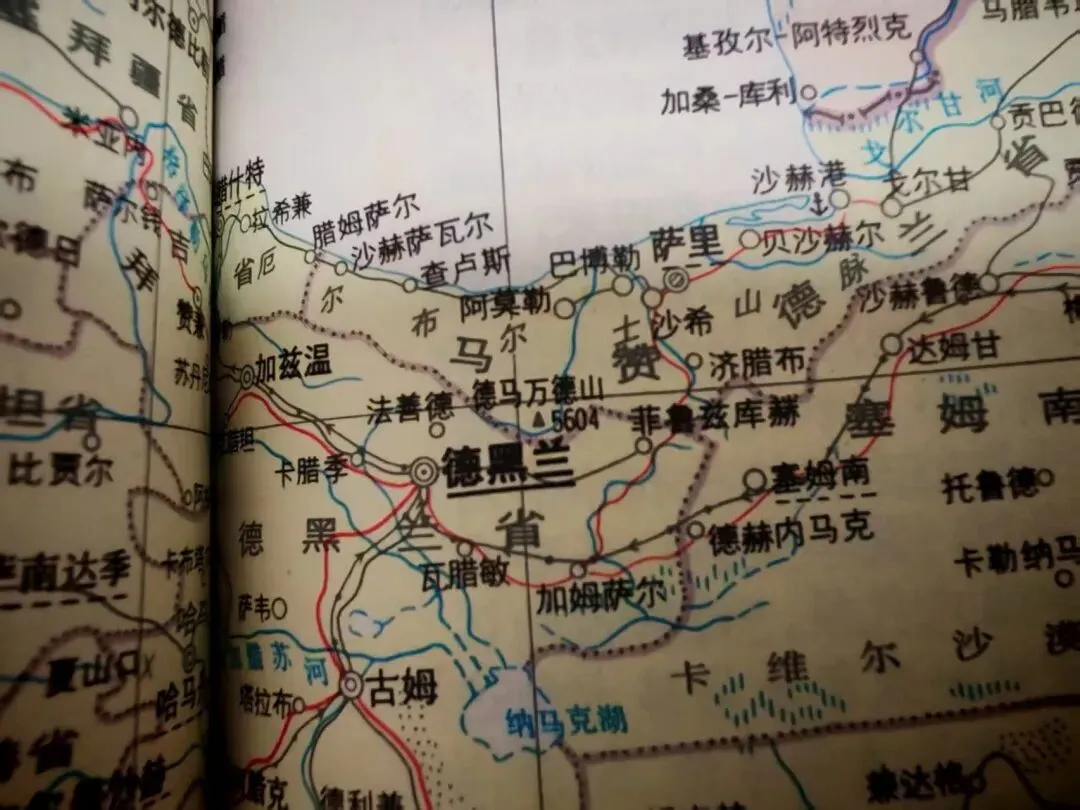 基孜尔-阿特烈克
加桑-库利
戈尔甘河
拜疆省
米亚内
萨尔特
腊什特
拉希兼
腊姆萨尔
沙赫萨瓦尔
查卢斯
沙赫港
戈尔甘
巴博勒
萨里
贝沙赫尔
阿莫勒
沙希
济腊布
沙赫鲁德
达姆甘
厄尔布尔士山脉
马赞德兰省
赞兼
加兹温
法善德
德马万德山
5604
菲鲁兹库赫
塞姆南
卡腊季
德黑兰
塞姆南
托鲁德
德黑兰省
德赫内马克
瓦腊敏
加姆萨尔
比贾尔
萨韦
古姆
塔拉布
纳马克湖
卡维尔沙漠
德利兼